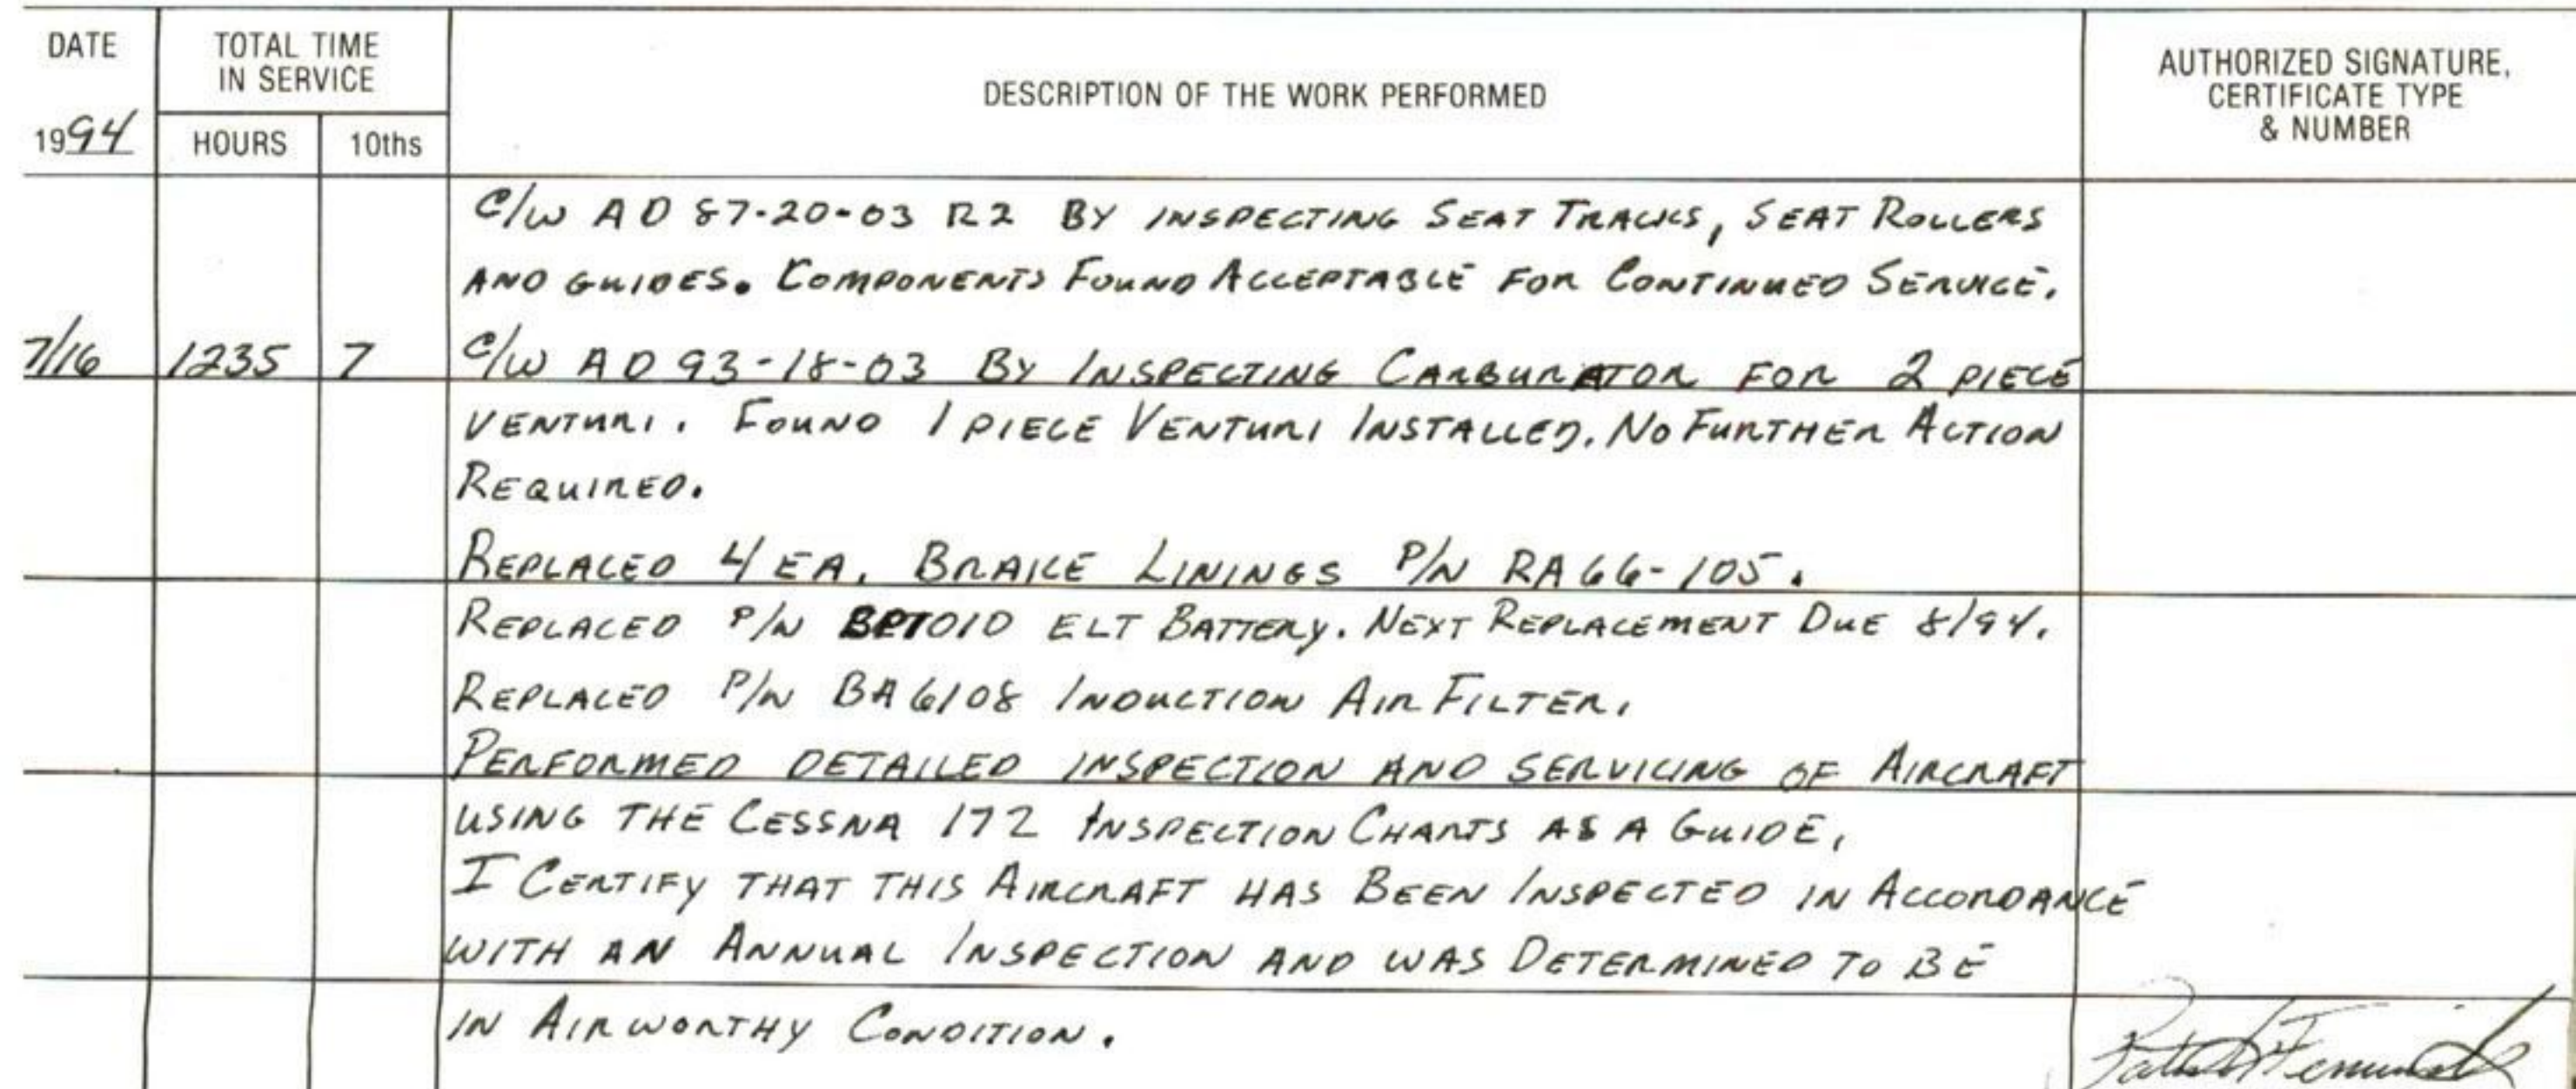 DATE
TOTAL TIME
IN SERVICE
DESCRIPTION OF THE WORK PERFORMED
AUTHORIZED SIGNATURE,
CERTIFICATE TYPE
& NUMBER
1994
HOURS
10ths
C/W AD 87-20-03 R2 BY INSPECTING SEAT TRACKS, SEAT ROLLERS
AND GUIDES. COMPONENTS FOUND ACCEPTABLE FOR CONTINUED SERVICE.
7/16 1235 7 C/W AD 93-18-03 BY INSPECTING CARBURATOR FOR 2 PIECE
VENTURI. FOUND 1 PIECE VENTURI INSTALLED. NO FURTHER ACTION
REQUIRED.
REPLACED 4 EA. BRAKE LININGS P/N RA66-105.
REPLACED P/N ELT BATTERY. NEXT REPLACEMENT DUE 8/94.
REPLACED P/N BA6108 INDUCTION AIR FILTER.
PERFORMED DETAILED INSPECTION AND SERVICING OF AIRCRAFT
USING THE CESSNA 172 INSPECTION CHARTS AS A GUIDE.
I CERTIFY THAT THIS AIRCRAFT HAS BEEN INSPECTED IN ACCORDANCE
WITH AN ANNUAL INSPECTION AND WAS DETERMINED TO BE
IN AIRWORTHY CONDITION.